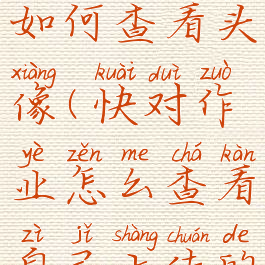 如何查看头
xiàng kuài duì zuò
像(快对作
yè zěn me chá kàn
业怎么查看
zì jǐ shàng chuán de
自己上传的